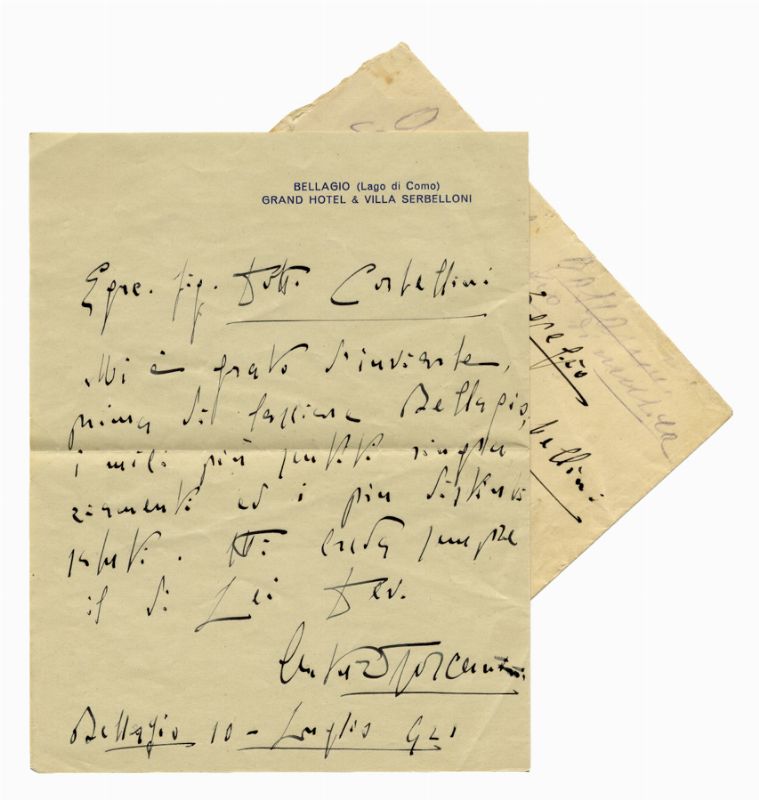 BELLAGIO (Lago di Como)
GRAND HOTEL & VILLA SERBELLONI
Egre. Sig. Dott. Costellini
Mi è grato d'inviarle,
prima di lasciare Bellagio,
i miei più sentiti ringra
ziamenti ed i più distinti
saluti. Mi creda sempre
il di Lei Dev.
Arturo Toscanini
Bellagio 10 - Luglio 921
Egregio
bellini